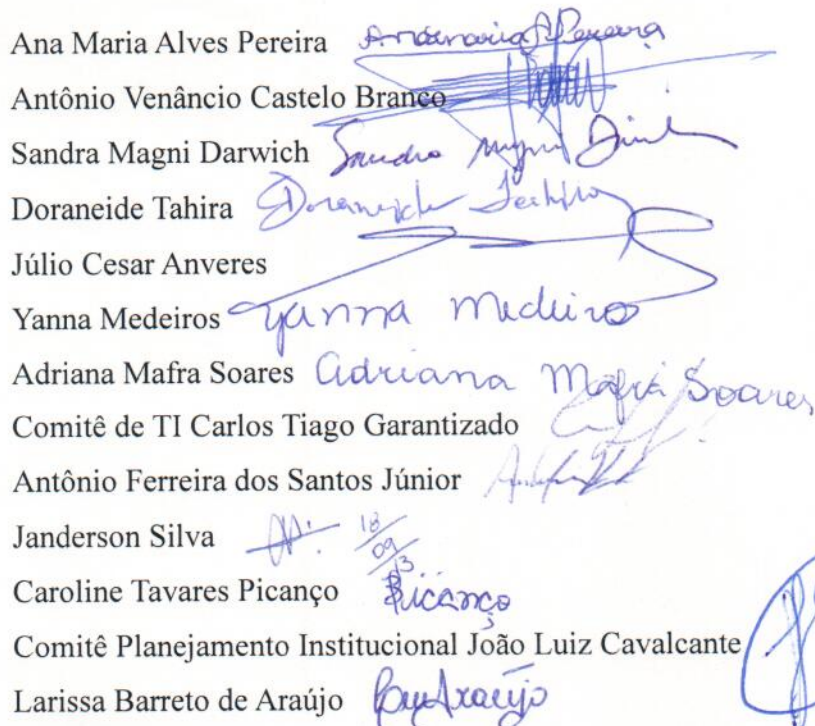 Ana Maria Alves Pereira Anamaria A Pereira
Antônio Venâncio Castelo Branco
Sandra Magni Darwich Sandra Magni
Doraneide Tahira Doraneide Tahira
Júlio Cesar Anveres
Yanna Medeiros Yanna Medeiros
Adriana Mafra Soares Adriana Mafra Soares
Comitê de TI Carlos Tiago Garantizado
Antônio Ferreira dos Santos Júnior
Janderson Silva 18/09/13
Caroline Tavares Picanço Picanço
Comitê Planejamento Institucional João Luiz Cavalcante
Larissa Barreto de Araújo Araújo